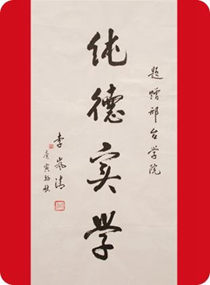 题赠邢台学院
纯德实学
李岚清
庚寅